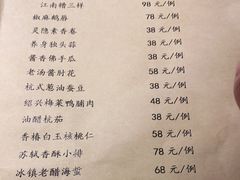 江南糟三样 98元/例
椒麻鹅胗 78元/例
灵隐素香卷 38元/例
养身独头蒜 38元/例
酱香佛手瓜 38元/例
老汤酱肘花 58元/例
杭式葱油蚕豆 38元/例
绍兴梅菜鸭脯肉 48元/例
油醋杭茄 38元/例
香椿白玉核桃仁 58元/例
苏轼香酥小排 78元/例
冰镇老醋海蜇 68元/例